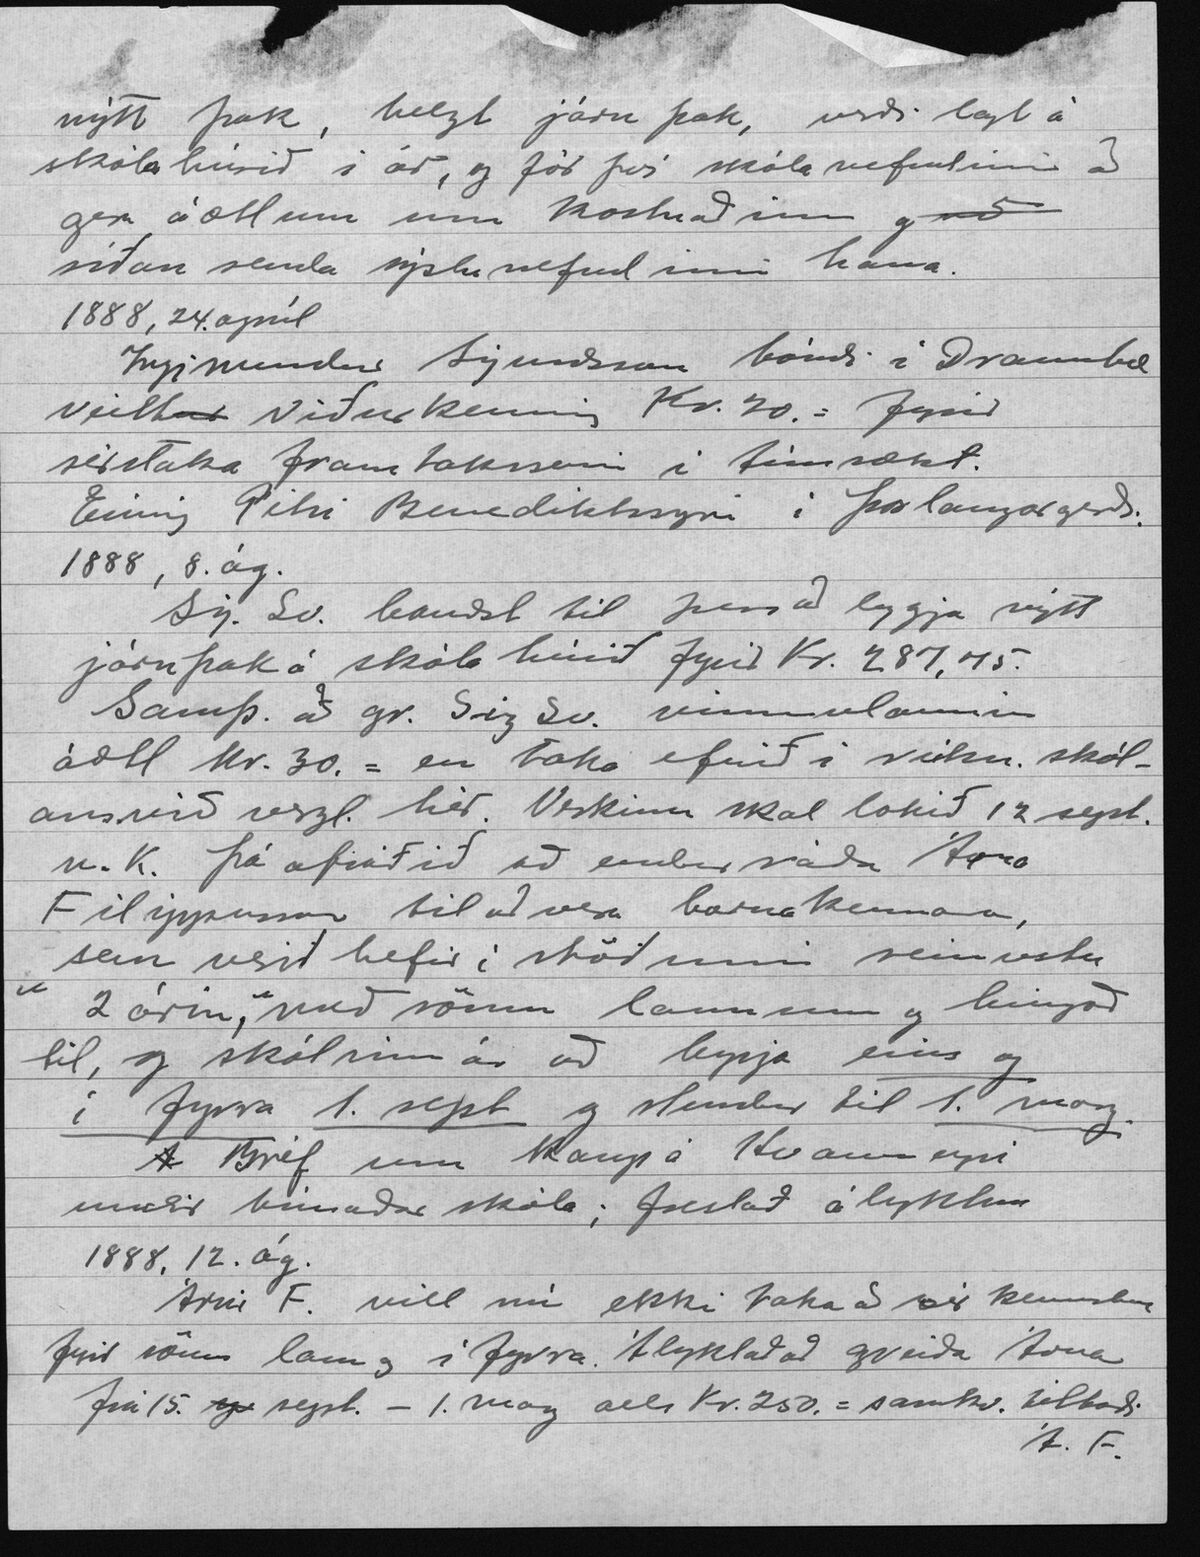 nýtt þak, helzt járnþak, verði lagt á
skólahúsið í ár, og fór því skólanefndinni að
gera áætlun um kostnaðinn og
síðan senda sýslunefndinni hana.
1888, 24. apríl
Ingimundur Sigurðsson bóndi í Draumbæ
veittur viðurkenning Kr. 20.= fyrir
sérstaka framtakssemi í túnrækt.
Einnig Pétri Benediktssyni í Þorlaugargerði.
1888, 8. ág.
Sig. Sv. bauðst til þess að leggja nýtt
járnþak á skólahúsið fyrir Kr. 287,75.
Samþ. að gr. Sig Sv. vinnulaunin
áætl Kr. 30.= en taka efnið í reikn. skól-
ans við verzl. hér. Verkinu skal lokið 12 sept.
n.k. Þá afráðið að endurráða Árna
Filippusson til að vera barnakennara,
sem verið hefir í stöðunni seinustu
"2 árin," með sömu launum og hingað
til, og skólinn á að byrja eins og
í fyrra 1. sept og stendur til 1. maj.
Bréf um kaup á Hvanneyri
undir búnaðarskóla; frestað ályktun
1888, 12. ág.
Árni F. vill nú ekki taka að sér kennsluna
fyrir sömu laun og í fyrra. Ályktað að greiða Árna
frá 15. sept. – 1. maj alls Kr. 250.= samkv. tilboði
Á. F.